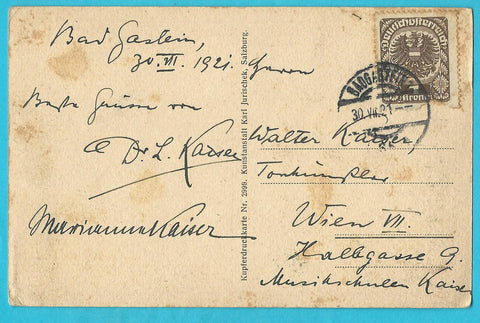 Bad Gastein,
30. VII. 1921.
Beste Grüsse von
Dr. L. Kaiser
Marianne Kaiser
Kupferdruckkarte Nr. 2999. Kunstanstalt Karl Jurischek, Salzburg.
Deutschösterreich
BADGASTEIN
30.VII.21
Herrn
Walter Kaiser,
Tonkünstler
Wien VII.
Halbgasse 9.
Musikschulen Kaiser